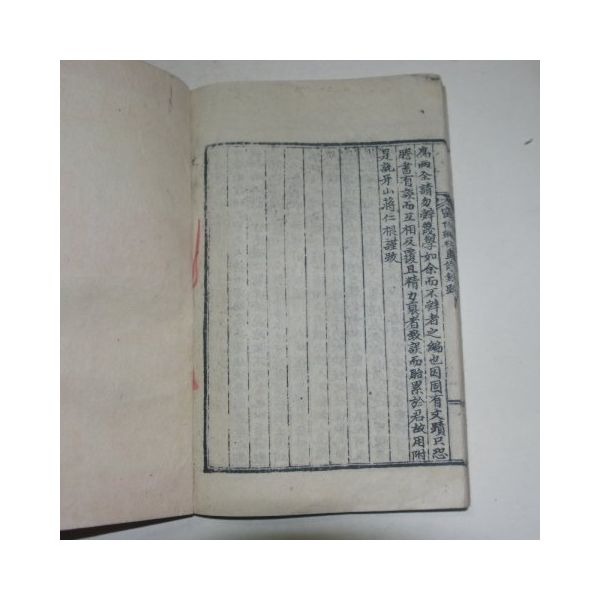 爲兩全請勿辭蔑學如余而不辭者之編也因固有文蹟只恐
謄書有誤而互相反覆且精力衰者致誤而貽累於君故用附
是說牙山蔣仁根謹跋